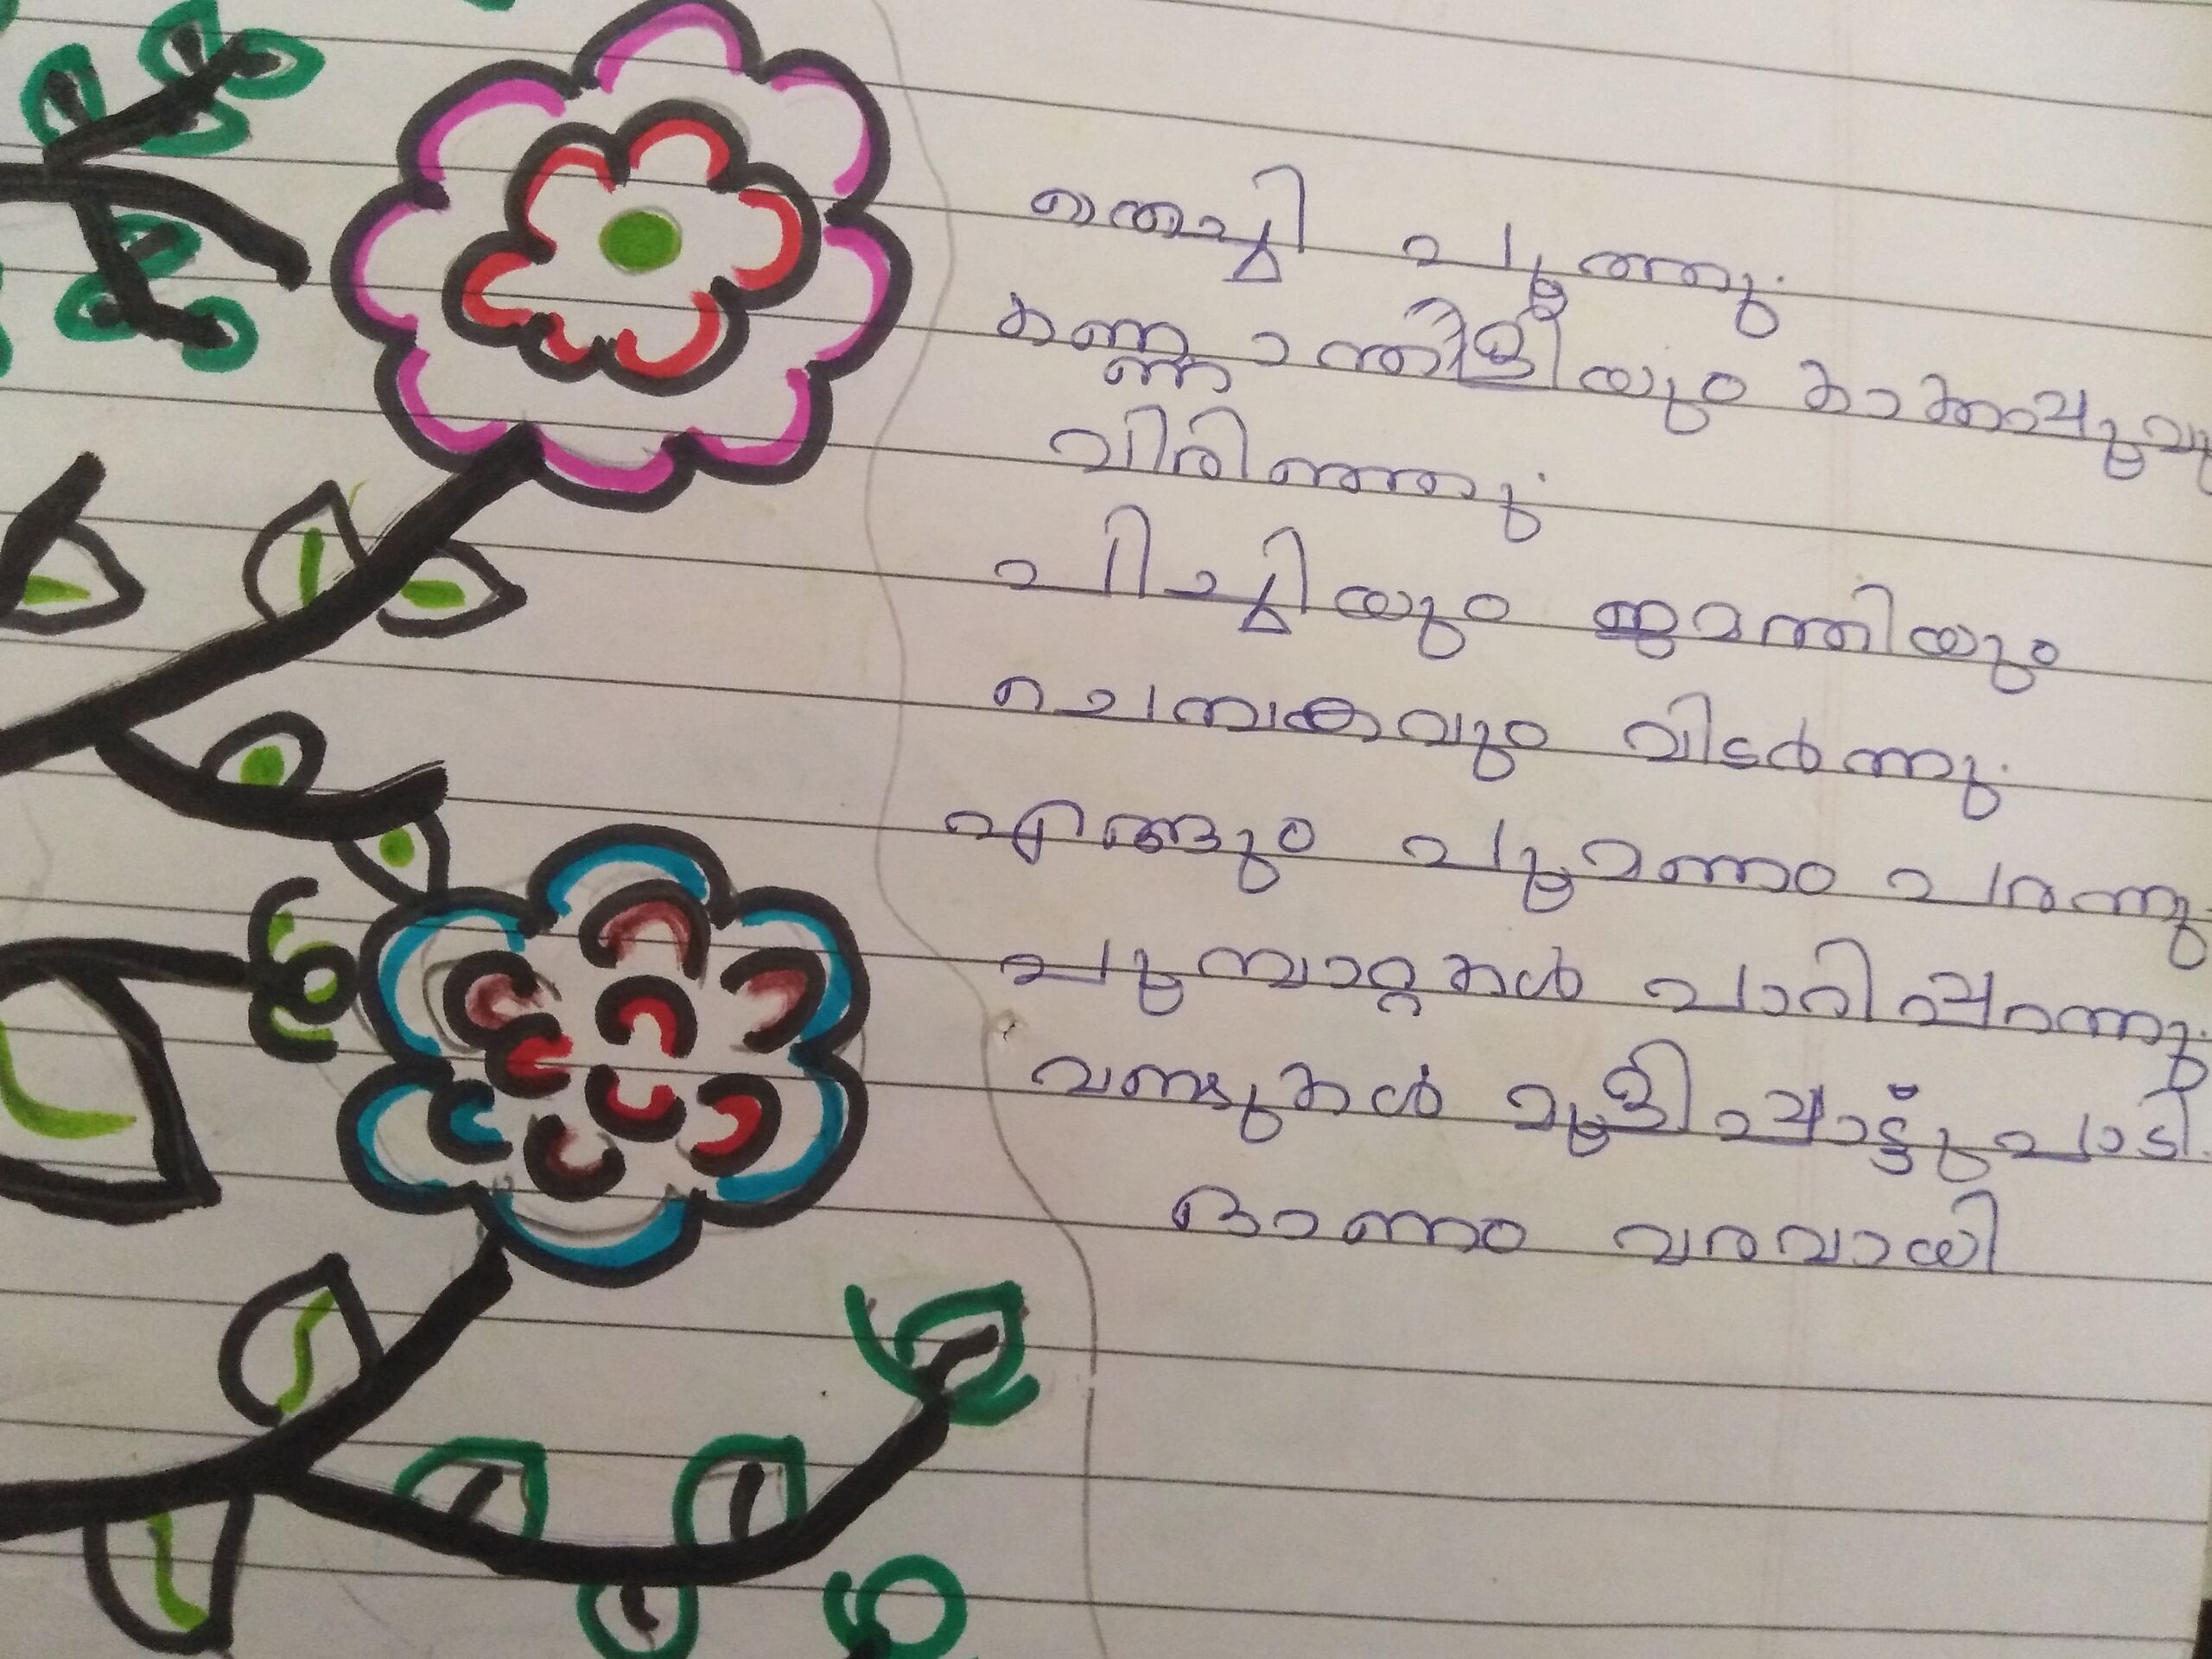 തെച്ചി പൂത്തു.
കണ്ണാന്തിളിയും കാക്കാപ്പൂവും
വിരിഞ്ഞു.
പിച്ചിയും ജമന്തിയും
ചെമ്പകവും വിടർന്നു.
എങ്ങും പൂമണം പരന്നു
പൂമ്പാറ്റകൾ പാറിപ്പറന്നു.
വണ്ടുകൾ മൂളിപ്പാട്ടു പാടി.
ഓണം വരവായി